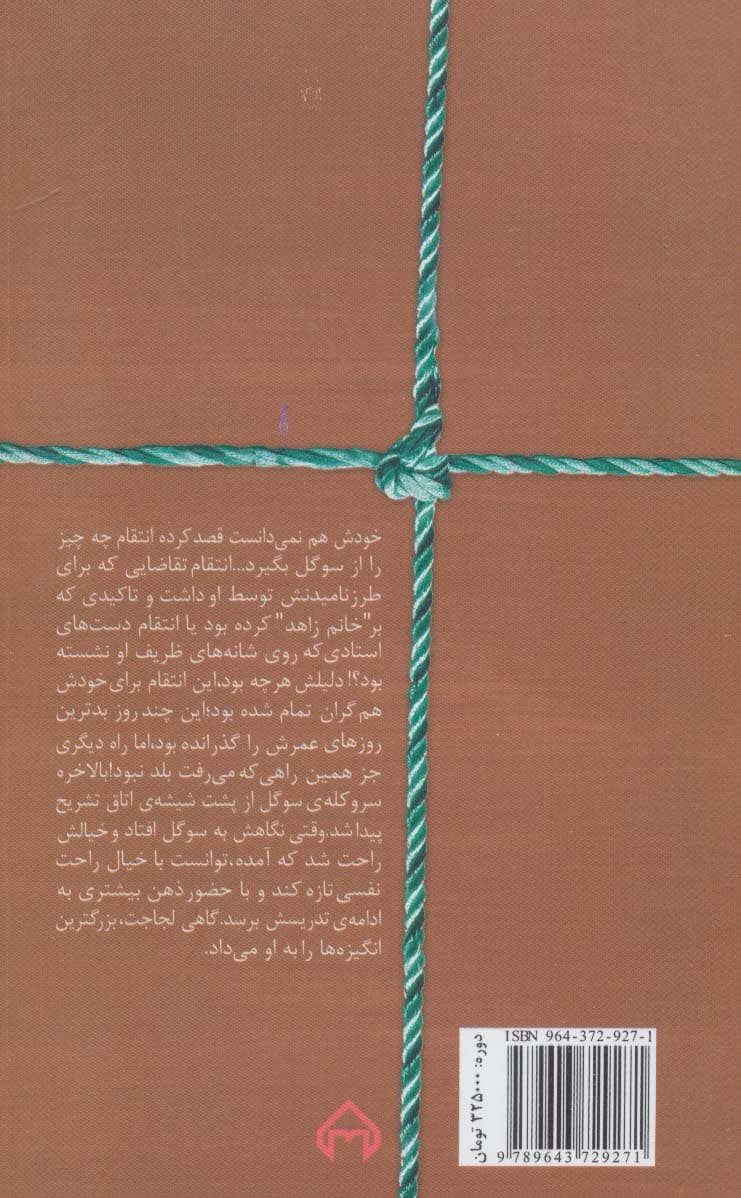 خودش هم نمی‌دانست قصد کرده انتقام چه چیز
را از سوگل بگیرد...انتقام تقاضایی که برای
طرز نامیدنش توسط او داشت و تاکیدی که
بر"خانم زاهد" کرده بود یا انتقام دست‌های
استادی که روی شانه‌های ظریف او نشسته
بود؟! دلیلش هرچه بود،این انتقام برای خودش
هم گران تمام شده بود؛این چند روز بدترین
روزهای عمرش را گذرانده بود،اما راه دیگری
جز همین راهی که می‌رفت بلد نبود!بالاخره
سروکله‌ی سوگل از پشت شیشه‌ی اتاق تشریح
پیدا شد.وقتی نگاهش به سوگل افتاد و خیالش
راحت شد که آمده،توانست با خیال راحت
نفسی تازه کند و با حضور ذهن بیشتری به
ادامه‌ی تدریسش برسد.گاهی لجاجت،بزرگترین
انگیزه‌ها را به او می‌داد.
ISBN 964-372-927-1
دوره: ۳۲۵۰۰۰ تومان
9 789643 729271